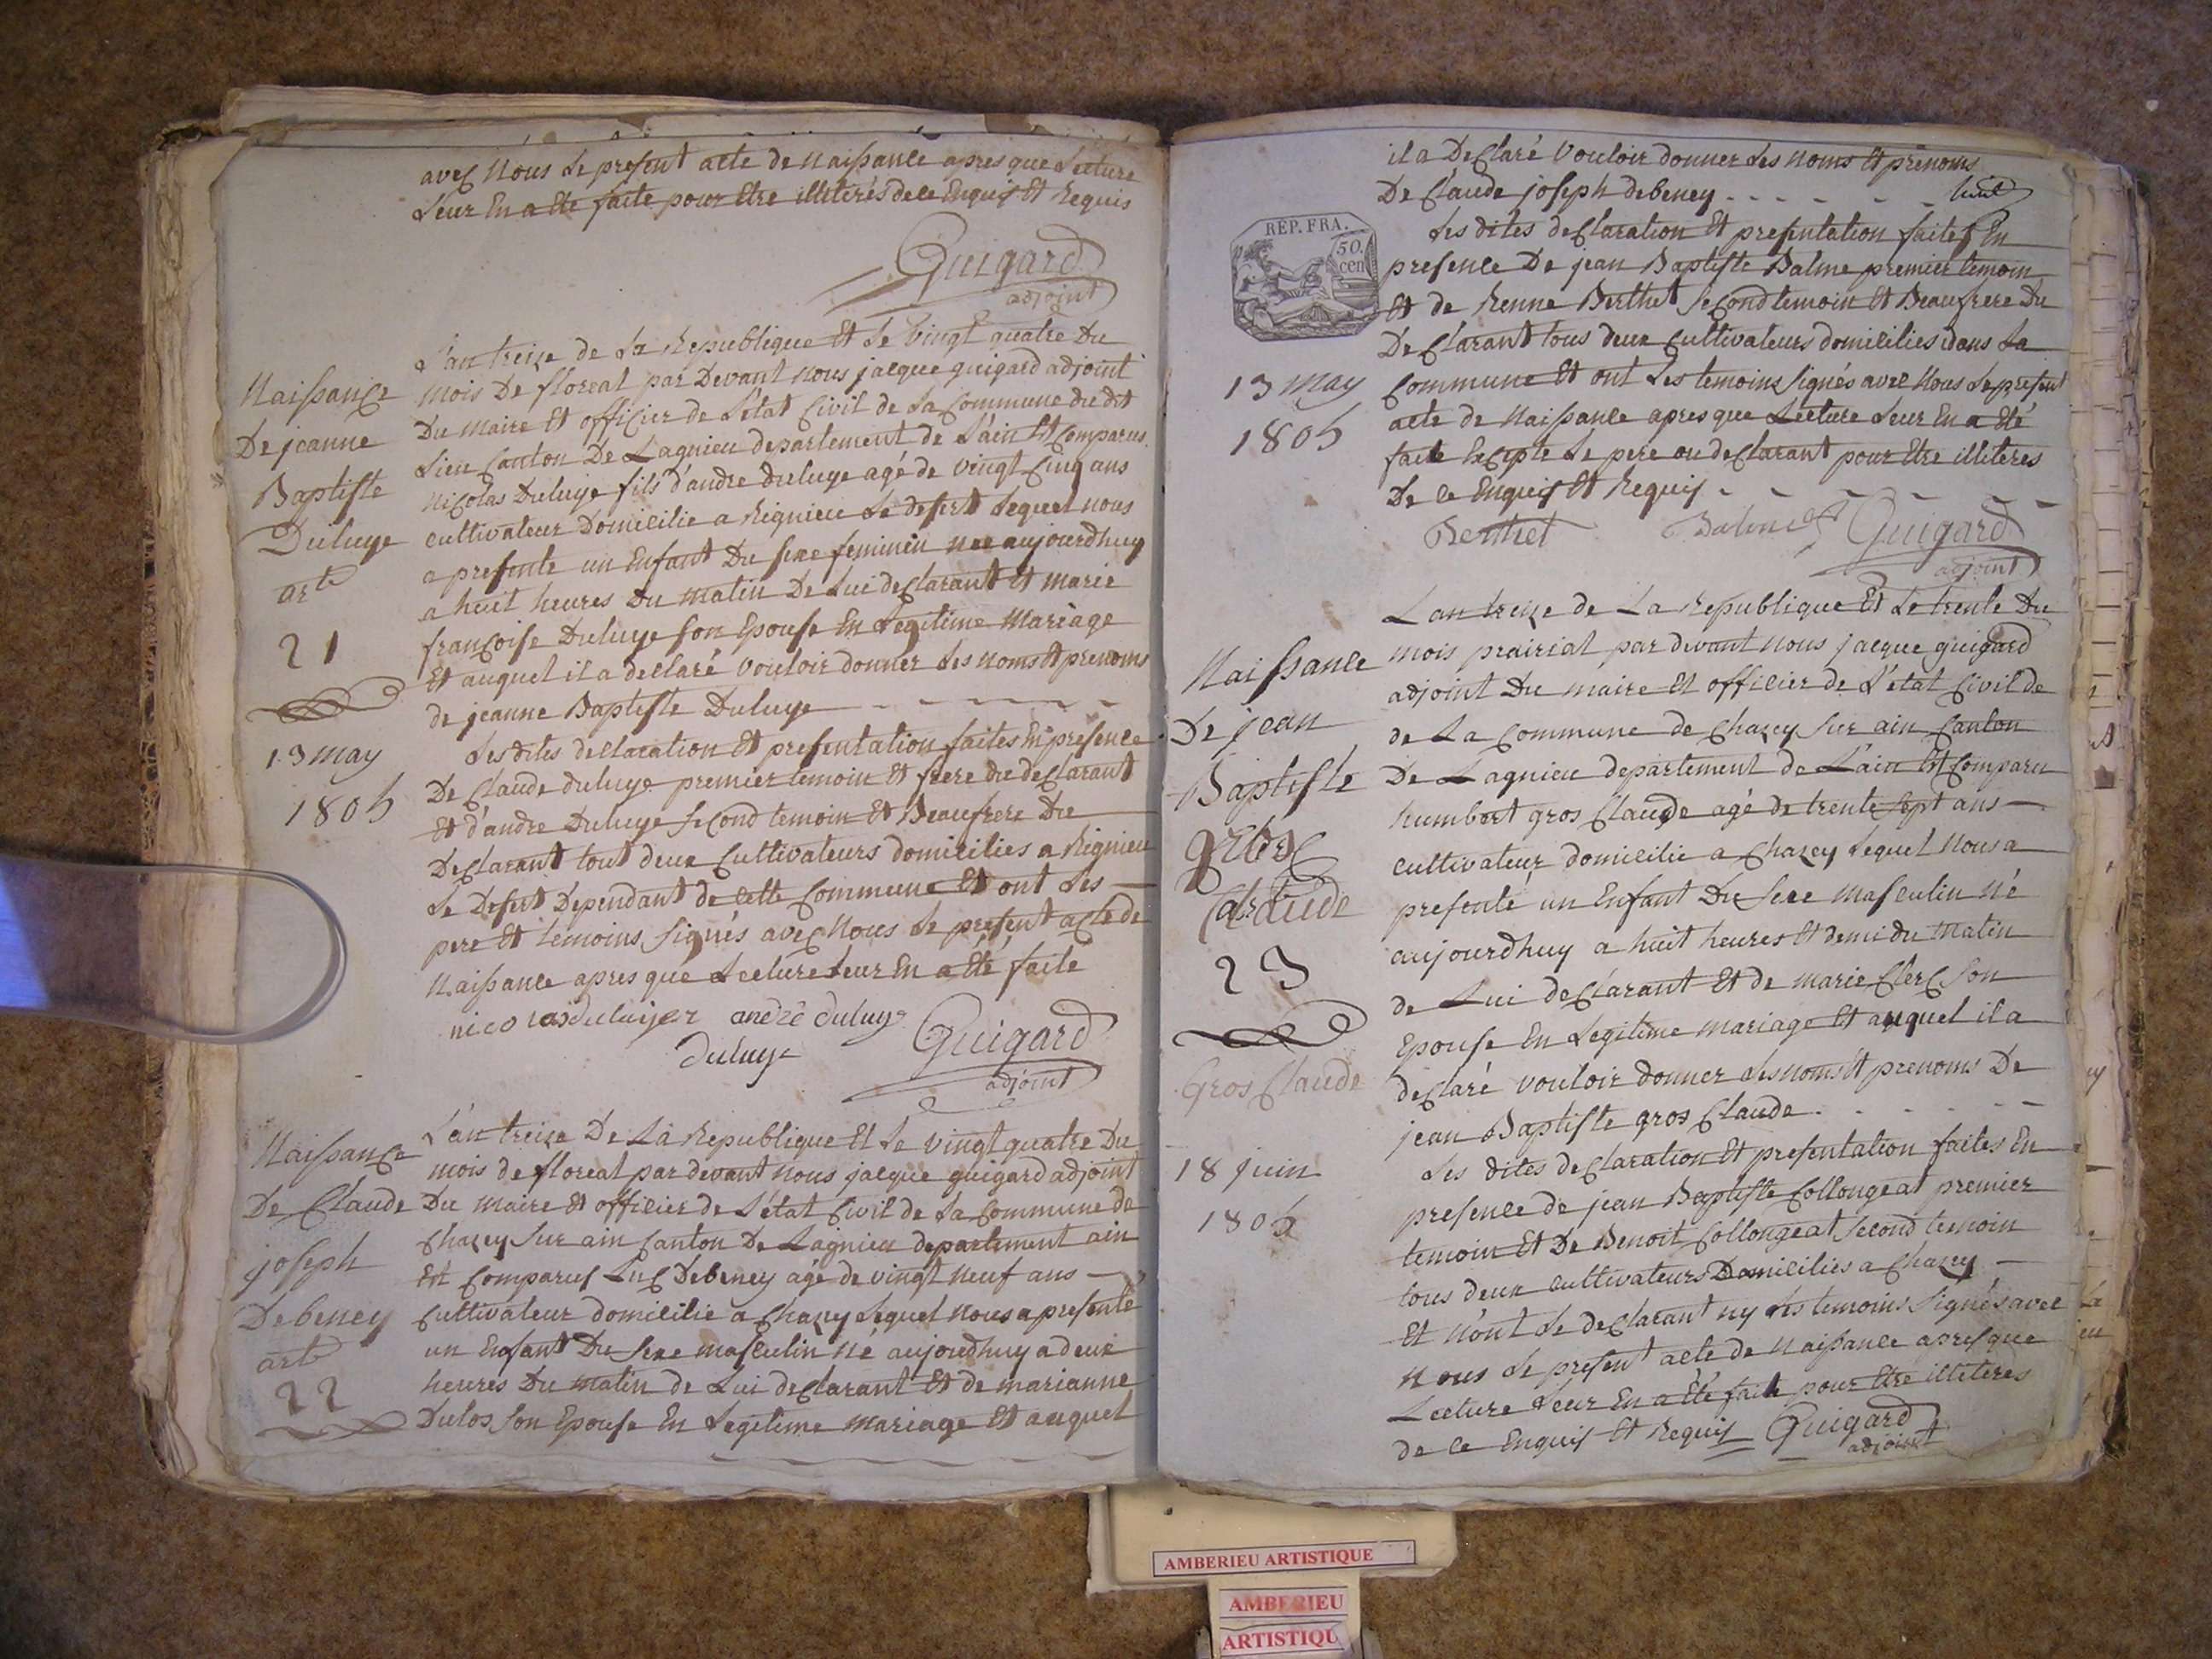 avec Nous Le present acte de Naissance apres que Lecture
Leur En a Eté faite pour Etre illiterés de ce Enquis Et Requis
Guigard
adjoint
Naissance
De jeanne
Baptiste
Duluye
arte
21
13 may
1805
L'an treize de La Republique Et Le vingt quatre Du
mois De floreal par Devant Nous jacque guigard adjoint
Du maire Et officier de L'etat Civil de La Commune du dit
Lieu Canton De Lagnieu departement de L'ain Est Comparus
Nicolas Duluye fils d'andre duluye agé de vingt Cinq ans
cultivateur Domicilié a Rignieu Le desert Lequel nous
a presenté un Enfant Du sexe feminin née aujourdhuy
a huit heures Du matin De Lui declarant Et marie
françoise Duluye son Epouse En Legitime Mariage
Et auquel il a declaré vouloir donner Les noms Et prenoms
de jeanne Baptiste Duluye
Les dites declaration Et presentation faites En presence
De Claude duluye premier temoin Et frere du declarant
Et d'andre Duluye second temoin Et Beaufrere Du
Declarant tout deux Cultivateurs domiciliés a Rignieu
Le Desert Dependant de cette Commune Et ont Les
pere Et temoins signés avec Nous Le present acte de
Naissance apres que Lecture Leur En a Eté faite
nicolas duluyer andré duluye
duluye Guigard
adjoint
Naissance
De Claude
joseph
Debeney
arte
22
L'an treize De La Republique Et Le vingt quatre Du
mois de floreal par devant nous jacque guigard adjoint
Du maire Et officier de L'état Civil de La Commune de
Chazey Sur ain Canton De Lagnieu departement ain
Est Comparus Luc Debeney agé de vingt neuf ans
Cultivateur domicilié a Chazey Lequel Nous a presenté
un Enfant Du sexe masculin né aujourdhuy a deux
heures Du matin de Lui declarant Et de marianne
Dulos son Epouse En Legitime mariage Et auquel
il a Declaré Vouloir donner Les Noms Et prénoms
De Claude joseph debeney
Les dites declaration Et presentation faites En
presence De jean Baptiste Balme premier temoin
Et de Renne Berthet second temoin Et Beaufrere Du
Declarant tous deux Cultivateurs domiciliés dans La
Commune Et ont Les temoins signés avec Nous Le present
acte de Naissance apres que Lecture Leur En a Eté
faite Excepté Le pere ou declarant pour Etre illiteres
De ce Enquis Et Requis
REP. FRA.
50.
cen
13 may
1805
Berthet Balme Guigard
adjoint
Naissance
De jean
Baptiste
gros
Claude
23
Gros Claude
18 juin
1805
L'an treize de La Republique Et Le trente Du
mois prairial par devant nous jacque guigard
adjoint Du maire Et officier de L'état Civil de
de La Commune de Chazey Sur ain Canton
De Lagnieu departement de L'ain Est Comparu
humbert gros Claude agé de trente sept ans
cultivateur domicilié a Chazey Lequel Nous a
presenté un Enfant Du sexe masculin né
aujourdhuy a huit heures Et demi du matin
de Lui declarant Et de marie Clerc son
Epouse En Legitime mariage Et auquel il a
declaré vouloir donner Les noms Et prenoms De
jean Baptiste gros Claude
Les dites declaration Et presentation faites En
presence de jean Baptiste Collongeat premier
temoin Et De Benoit Collongeat second temoin
tous deux cultivateurs Domiciliés a Chazey
Et N'ont Le declarant ny Les temoins signés avec
Nous Le present acte de Naissance apres que
Lecture Leur En a Eté faite pour Etre illiteres
de ce Enquis Et Requis Guigard
adjoint
AMBERIEU ARTISTIQUE
AMBERIEU
ARTISTIQU